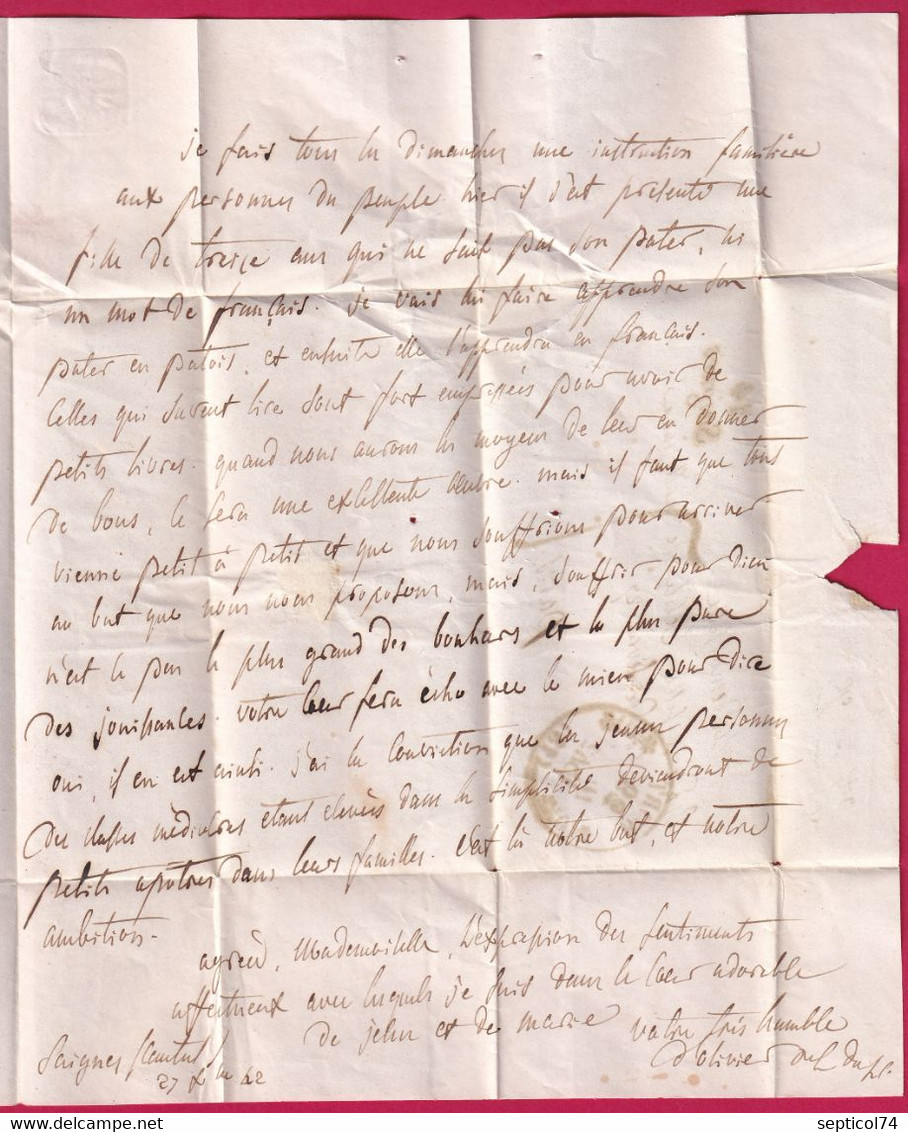 je fais tous les dimanches une instruction familière
aux personnes du peuple hier il s'est présenté une
fille de treize ans qui ne sait pas son pater, ni
un mot de français. je vais lui faire apprendre son
pater en patois, et ensuite elle l'apprendra en français.
Celles qui savent lire sont fort empressées pour avoir de
petits livres. quand nous aurons les moyens de leur en donner
de bons, ce sera une excellente œuvre. mais il faut que tout
vienne petit à petit et que nous souffrions pour arriver
au but que nous nous proposons, mais, souffrir pour Dieu
n'est ce pas le plus grand des bonheurs et la plus pure
des jouissances. votre cœur fera écho avec le mien pour dire
oui, il en est ainsi. j'ai la conviction que les jeunes personnes
des classes médiocres etant elevées dans la simplicité deviendront de
petits apotres dans leurs familles. c'est là notre but, et notre
ambition.
agréez, Mademoiselle, l'expression des sentiments
affectueux avec lesquels je suis dans le cœur adorable
de jesus et de marie votre très humble
Saignes (Cantal) d'olivier
27 42
septicol74